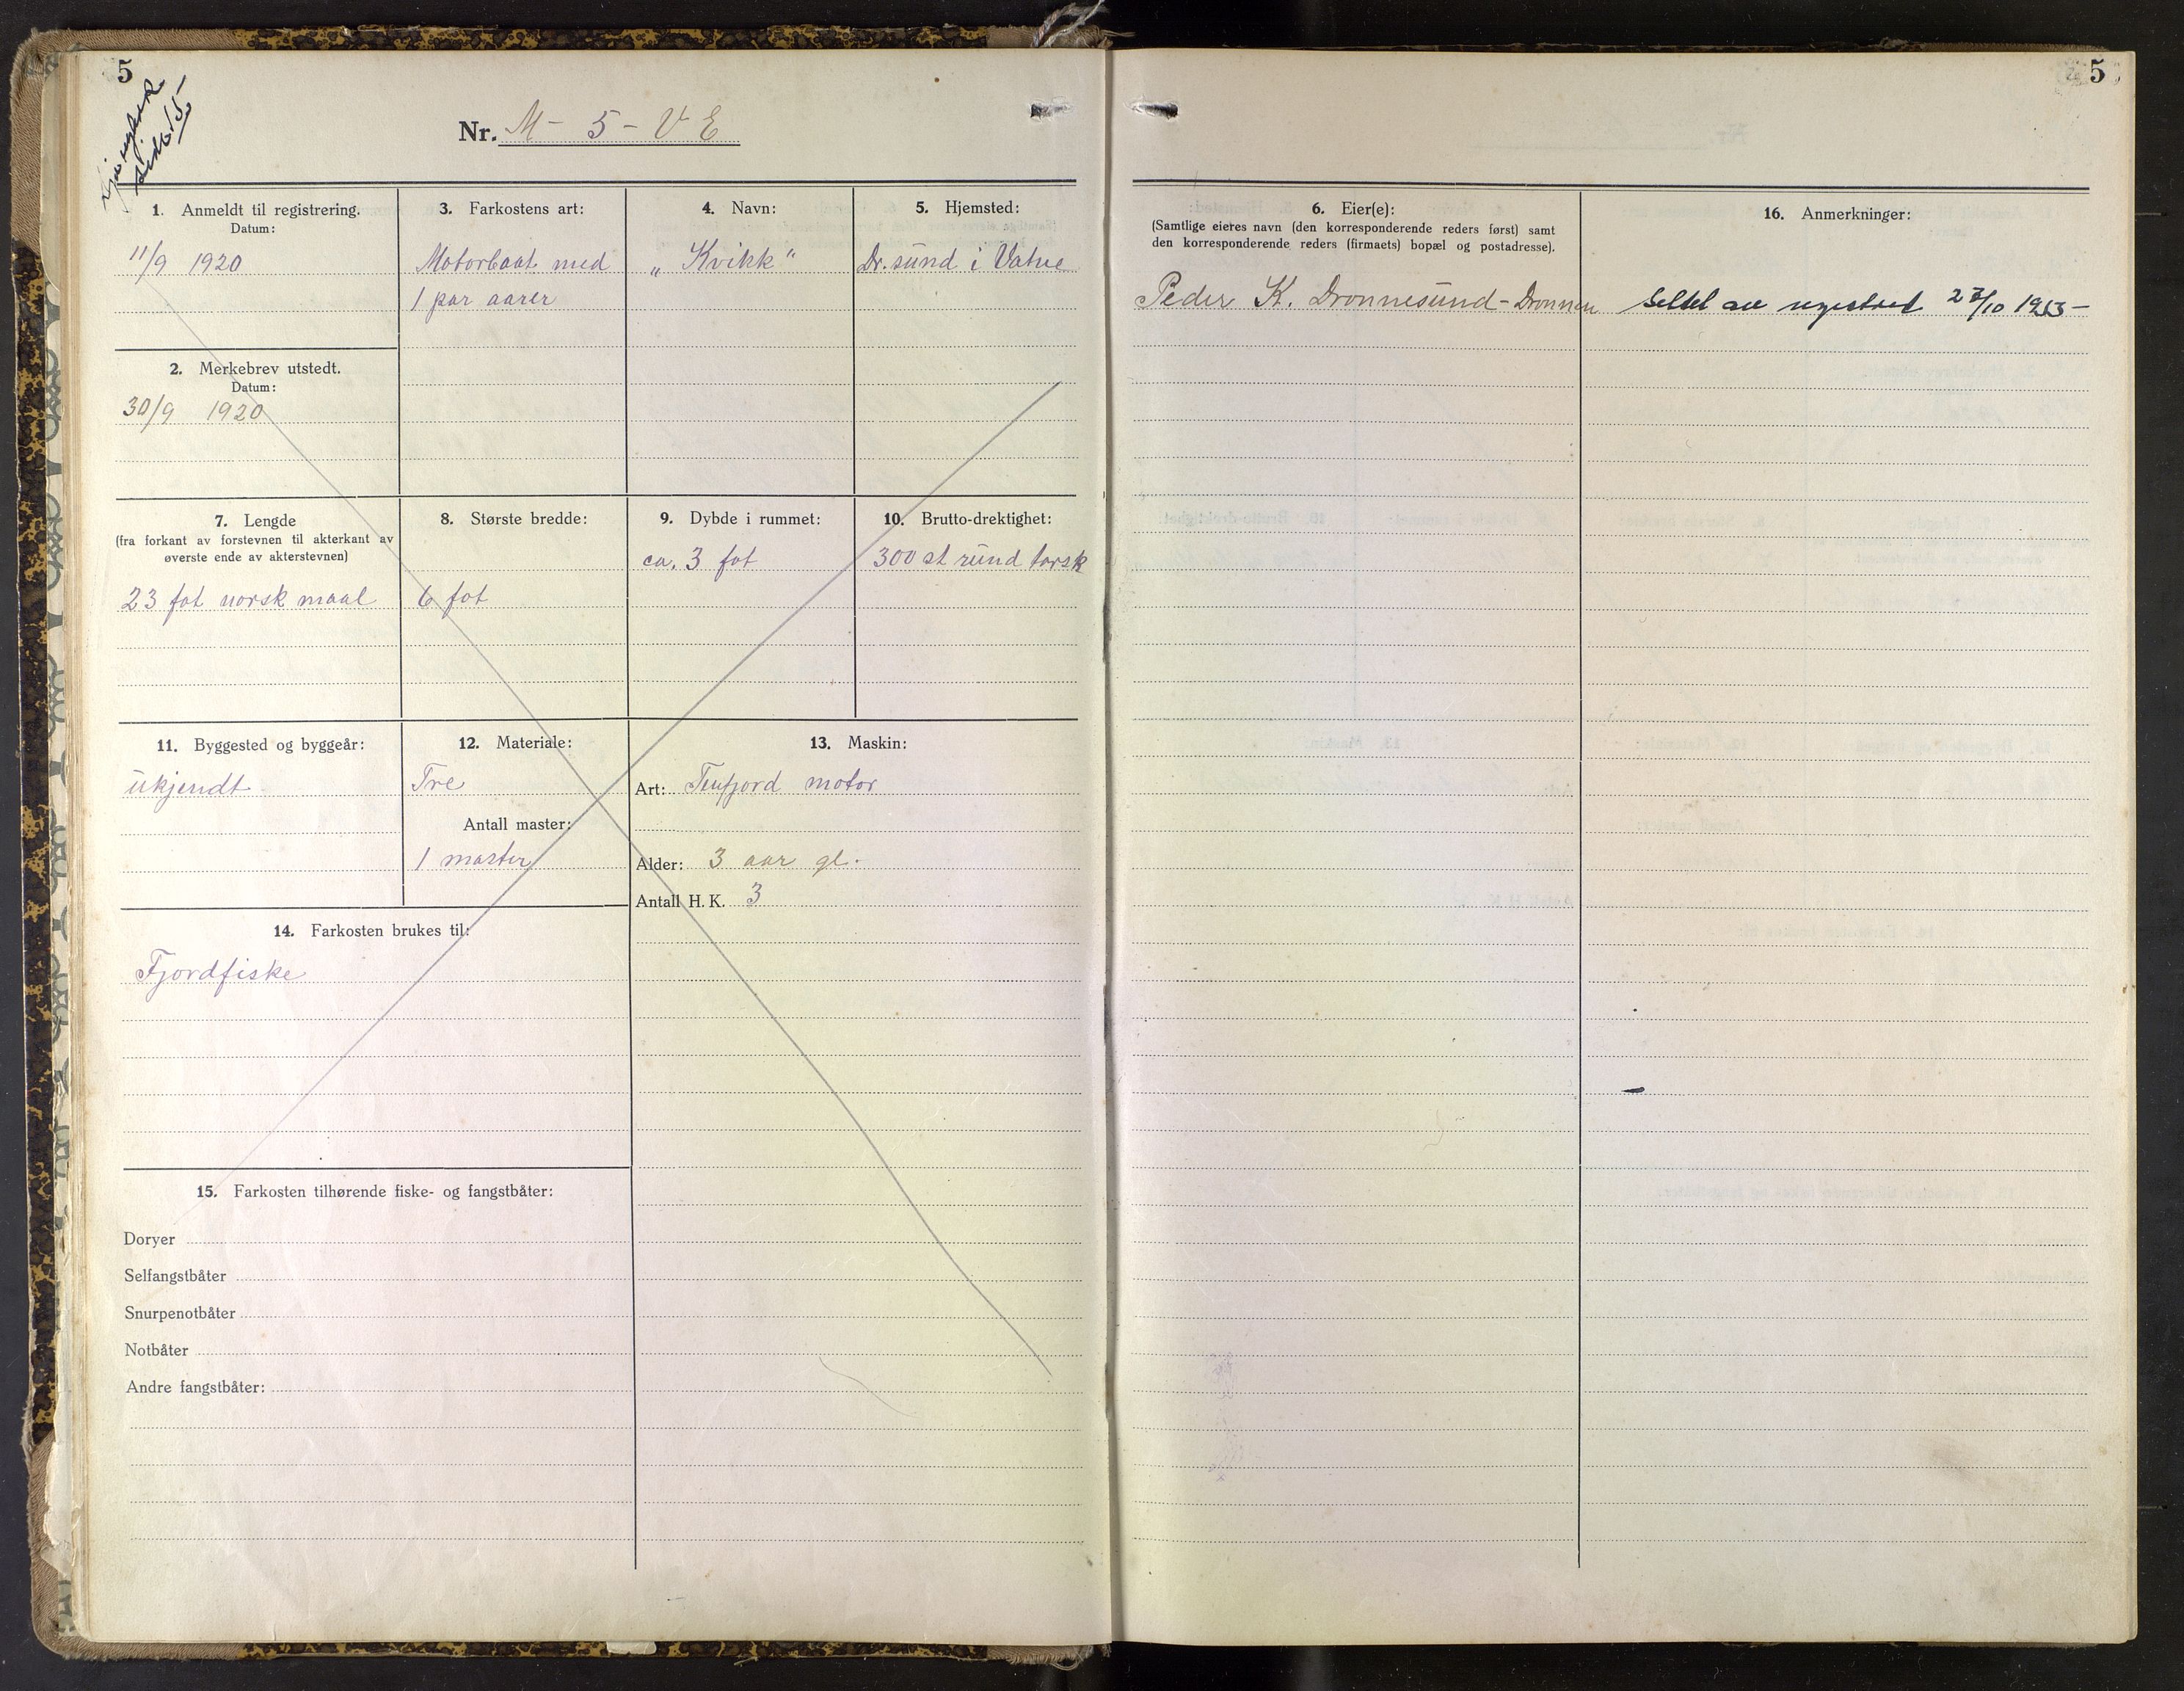 5
side 15-
Nr. M- 5 - V E
1. Anmeldt til registrering.
Datum:
11/9 1920
2. Merkebrev utstedt.
Datum:
30/9 1920
3. Farkostens art:
Motorbaat med
1 par aarer
4. Navn:
„ Kvikk "
5. Hjemsted:
Dr. sund i Vatne
7. Lengde
(fra forkant av forstevnen til akterkant av
øverste ende av akterstevnen)
23 fot norsk maal
8. Største bredde:
6 fot
9. Dybde i rummet:
ca. 3 fot
10. Brutto-drektighet:
300 st rund torsk
11. Byggested og byggeår:
ukjendt
12. Materiale:
Tre
Antall master:
1 master
13. Maskin:
Art: Tenfjord motor
Alder: 3 aar gl.
Antall H. K. 3
14. Farkosten brukes til:
Fjordfiske
15. Farkosten tilhørende fiske- og fangstbåter:
Doryer
Selfangstbåter
Snurpenotbåter
Notbåter
Andre fangstbåter:
5
6. Eier(e):
(Samtlige eieres navn (den korresponderende reders først) samt
den korresponderende reders (firmaets) bopæl og postadresse).
Peder K. Dronnesund - Dronnen
16. Anmerkninger:
registret 27/10 1953-